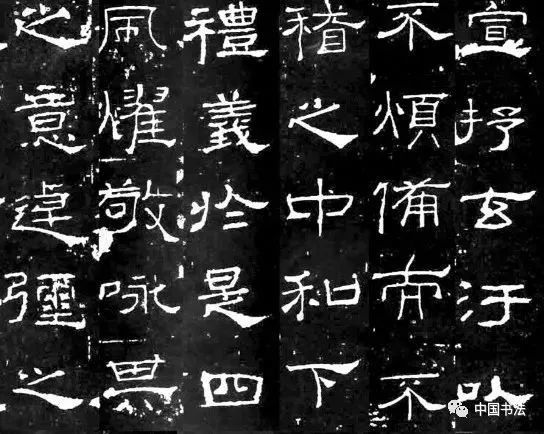 宣抒玄汙以
不煩備而不
稽之中和下
禮義於是四
風燿敬咏其
之意逴彌之
中国书法